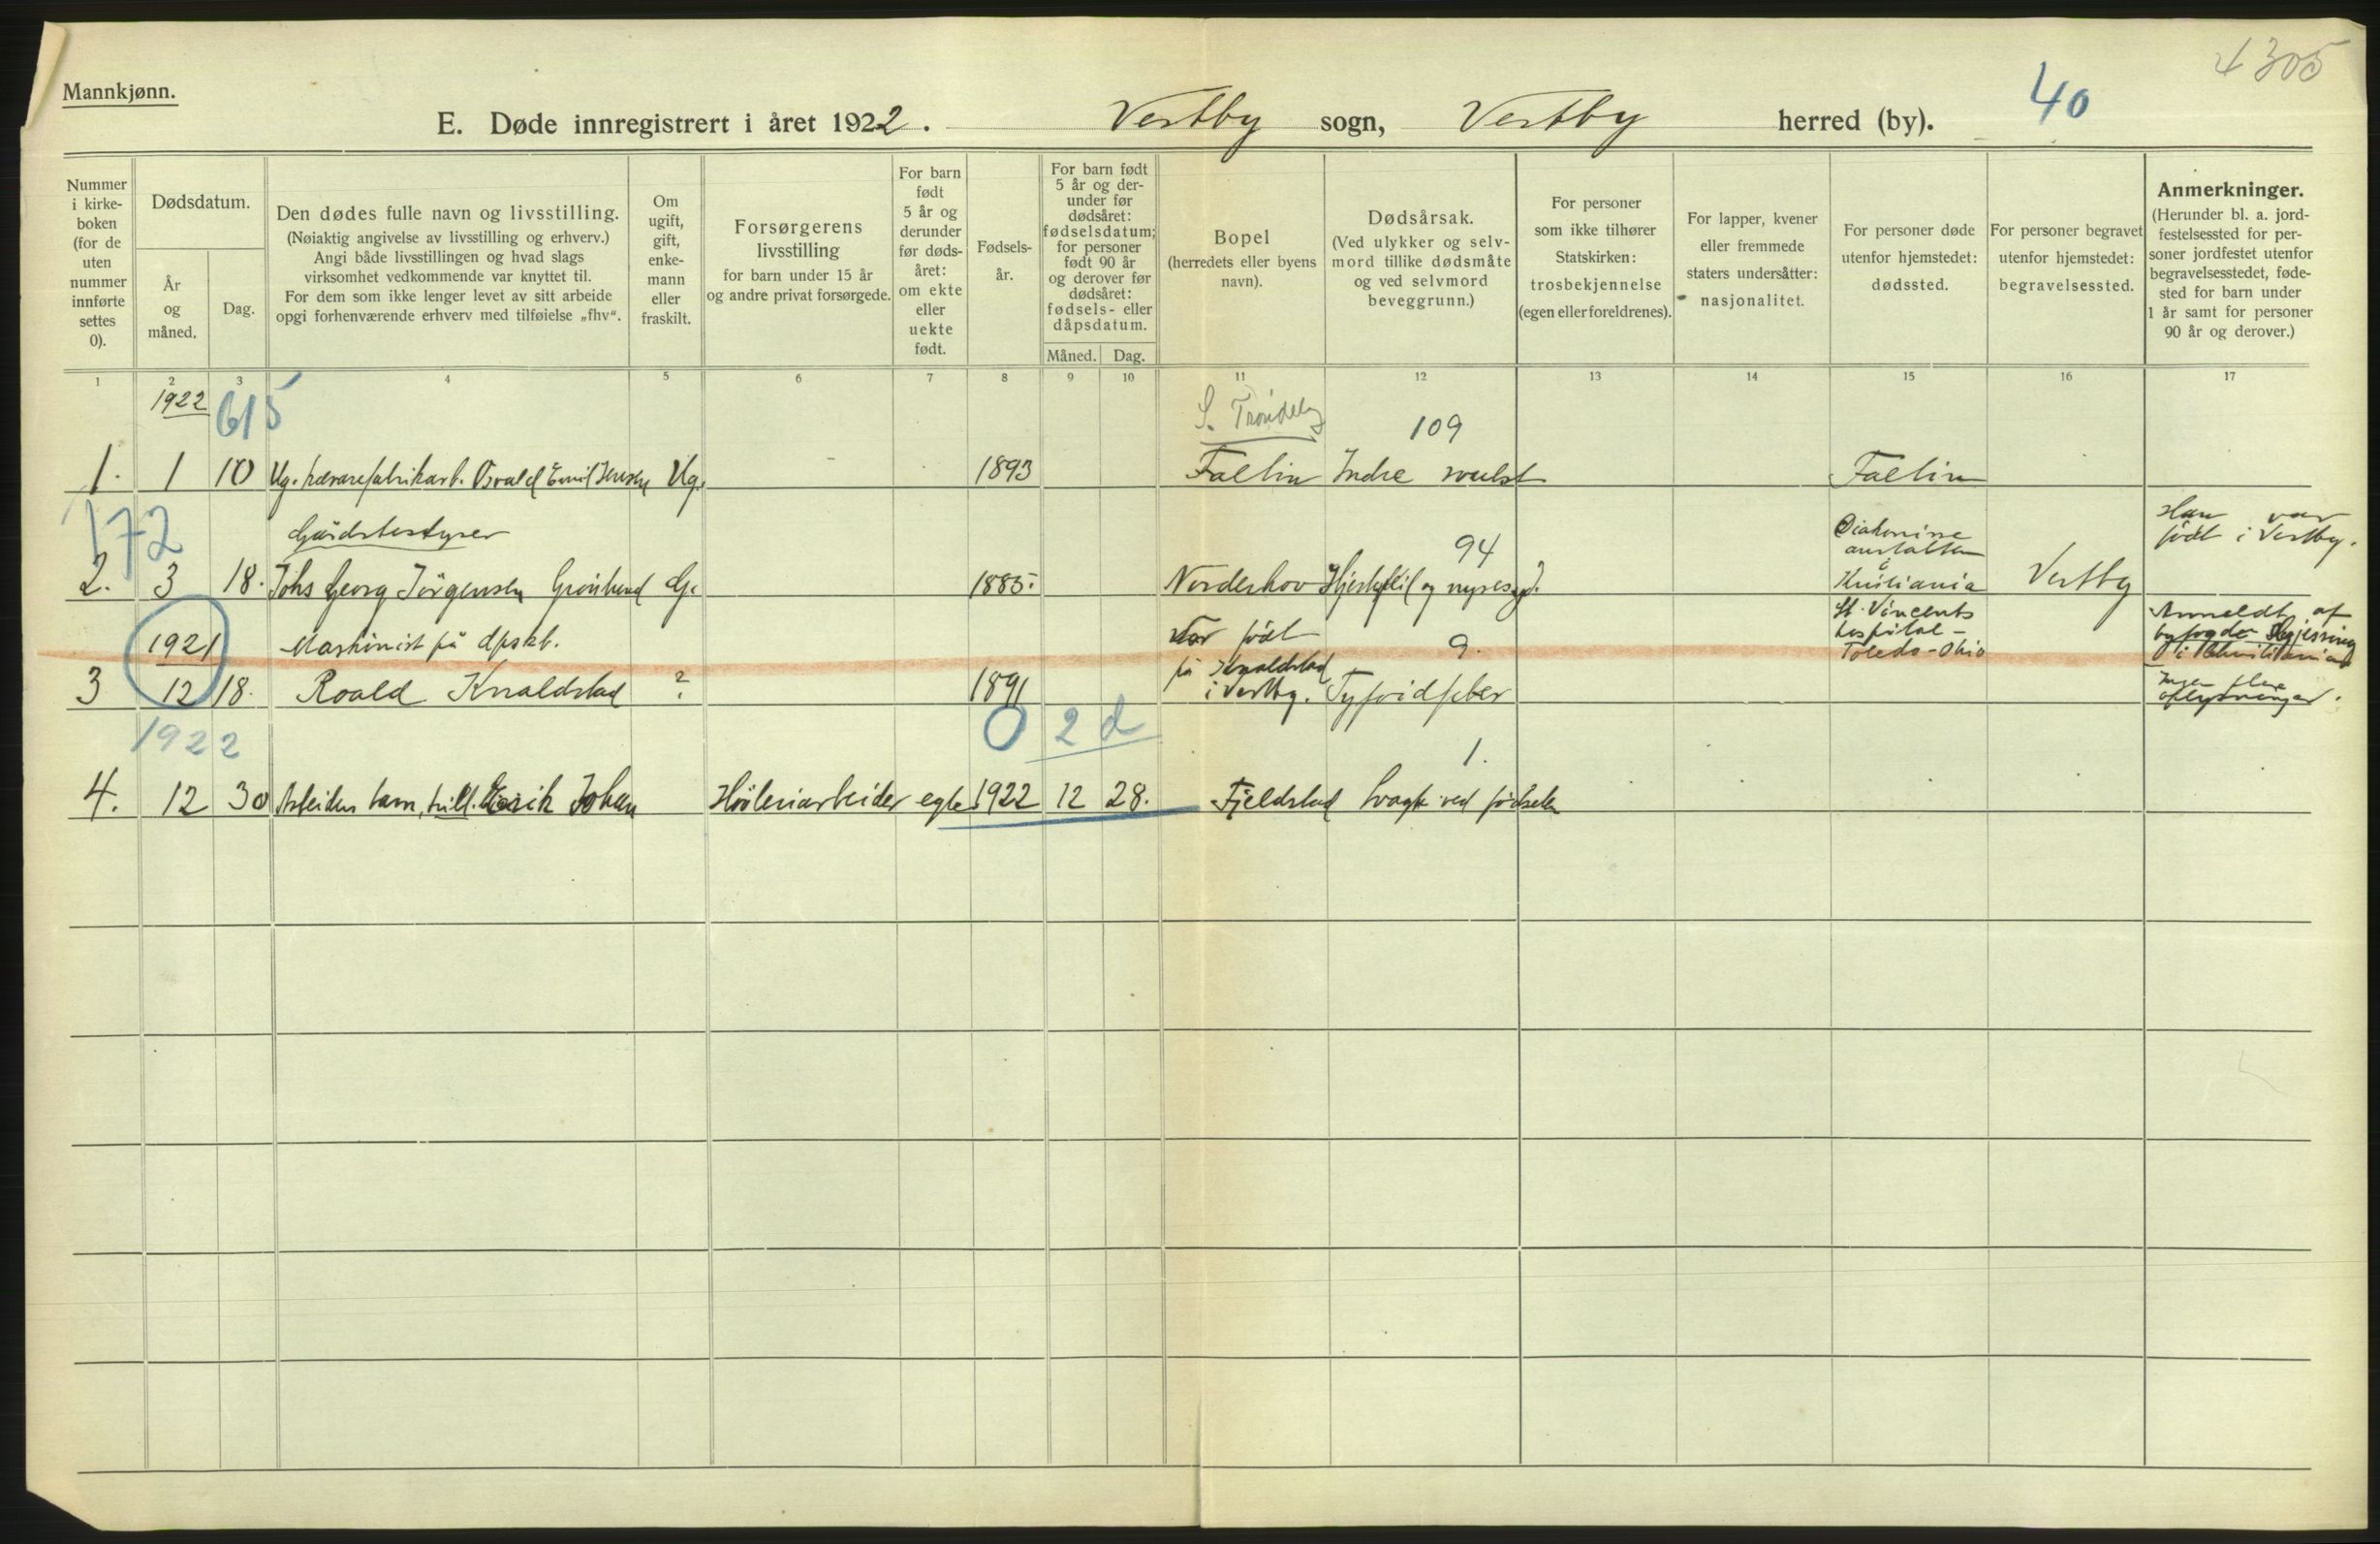 4305
40
Mannkjønn.
E. Døde innregistrert i året 1922. Vestby sogn, Vestby herred (by).
Nummer
i kirke-
boken
(for de
uten
nummer
innførte
settes
0).
Dødsdatum.
År
og
måned.
Dag.
Den dødes fulle navn og livsstilling.
(Nøiaktig angivelse av livsstilling og erhverv.)
Angi både livsstillingen og hvad slags
virksomhet vedkommende var knyttet til.
For dem som ikke lenger levet av sitt arbeide
opgi forhenværende erhverv med tilføielse „fhv“.
Om
ugift,
gift,
enke-
mann
eller
fraskilt.
Forsørgerens
livsstilling
for barn under 15 år
og andre privat forsørgede.
For barn
født
5 år og
derunder
før døds-
året:
om ekte
eller
uekte
født.
Fødsels-
år.
For barn født
5 år og der-
under før
dødsåret:
fødselsdatum;
for personer
født 90 år
og derover før
dødsåret:
fødsels- eller
dåpsdatum.
Måned. Dag.
Bopel
(herredets eller byens
navn).
Dødsårsak.
(Ved ulykker og selv-
mord tillike dødsmåte
og ved selvmord
beveggrunn.)
For personer
som ikke tilhører
Statskirken:
trosbekjennelse
(egen eller foreldrenes).
For lapper, kvener
eller fremmede
staters undersåtter:
nasjonalitet.
For personer døde
utenfor hjemstedet:
dødssted.
For personer begravet
utenfor hjemstedet:
begravelsessted.
Anmerkninger.
(Herunder bl. a. jord-
festelsessted for per-
soner jordfestet utenfor
begravelsesstedet, føde-
sted for barn under
1 år samt for personer
90 år og derover.)
1 2 3 4 5 6 7 8 9 10 11 12 13 14 15 16 17
1922 615
S. Trøndelg
109
1. 1 10 Ug. Osvald Emil Ug. 1893 Indre svulst
172
Gårdsbestyrer
94
Diakonisse
anstalten
i
Kristiania
Han var
født i Vestby.
2. 3 18. Johs Georg Jörgensen Grönlund G. 1885. Norderhov Hjerteklil og nyresyd. Vestby
1921
Maskinist på dpskb.
Var født
på Knaldstad
i Vestby.
9.
St. Vincents
hospital -
Toledo - Ohio
Anmeldt af
byfogden
i Kristiania
Ingen flere
oplysninger.
3 12 18. Roald Knaldstad ? 1891 Tyfoidfeber
1922
0 2 d
1.
4. 12 30 Arbeiders barn, Erik Johan Höileriarbeider egte 1922 12 28. Fjeldstad Svagk ved födselen